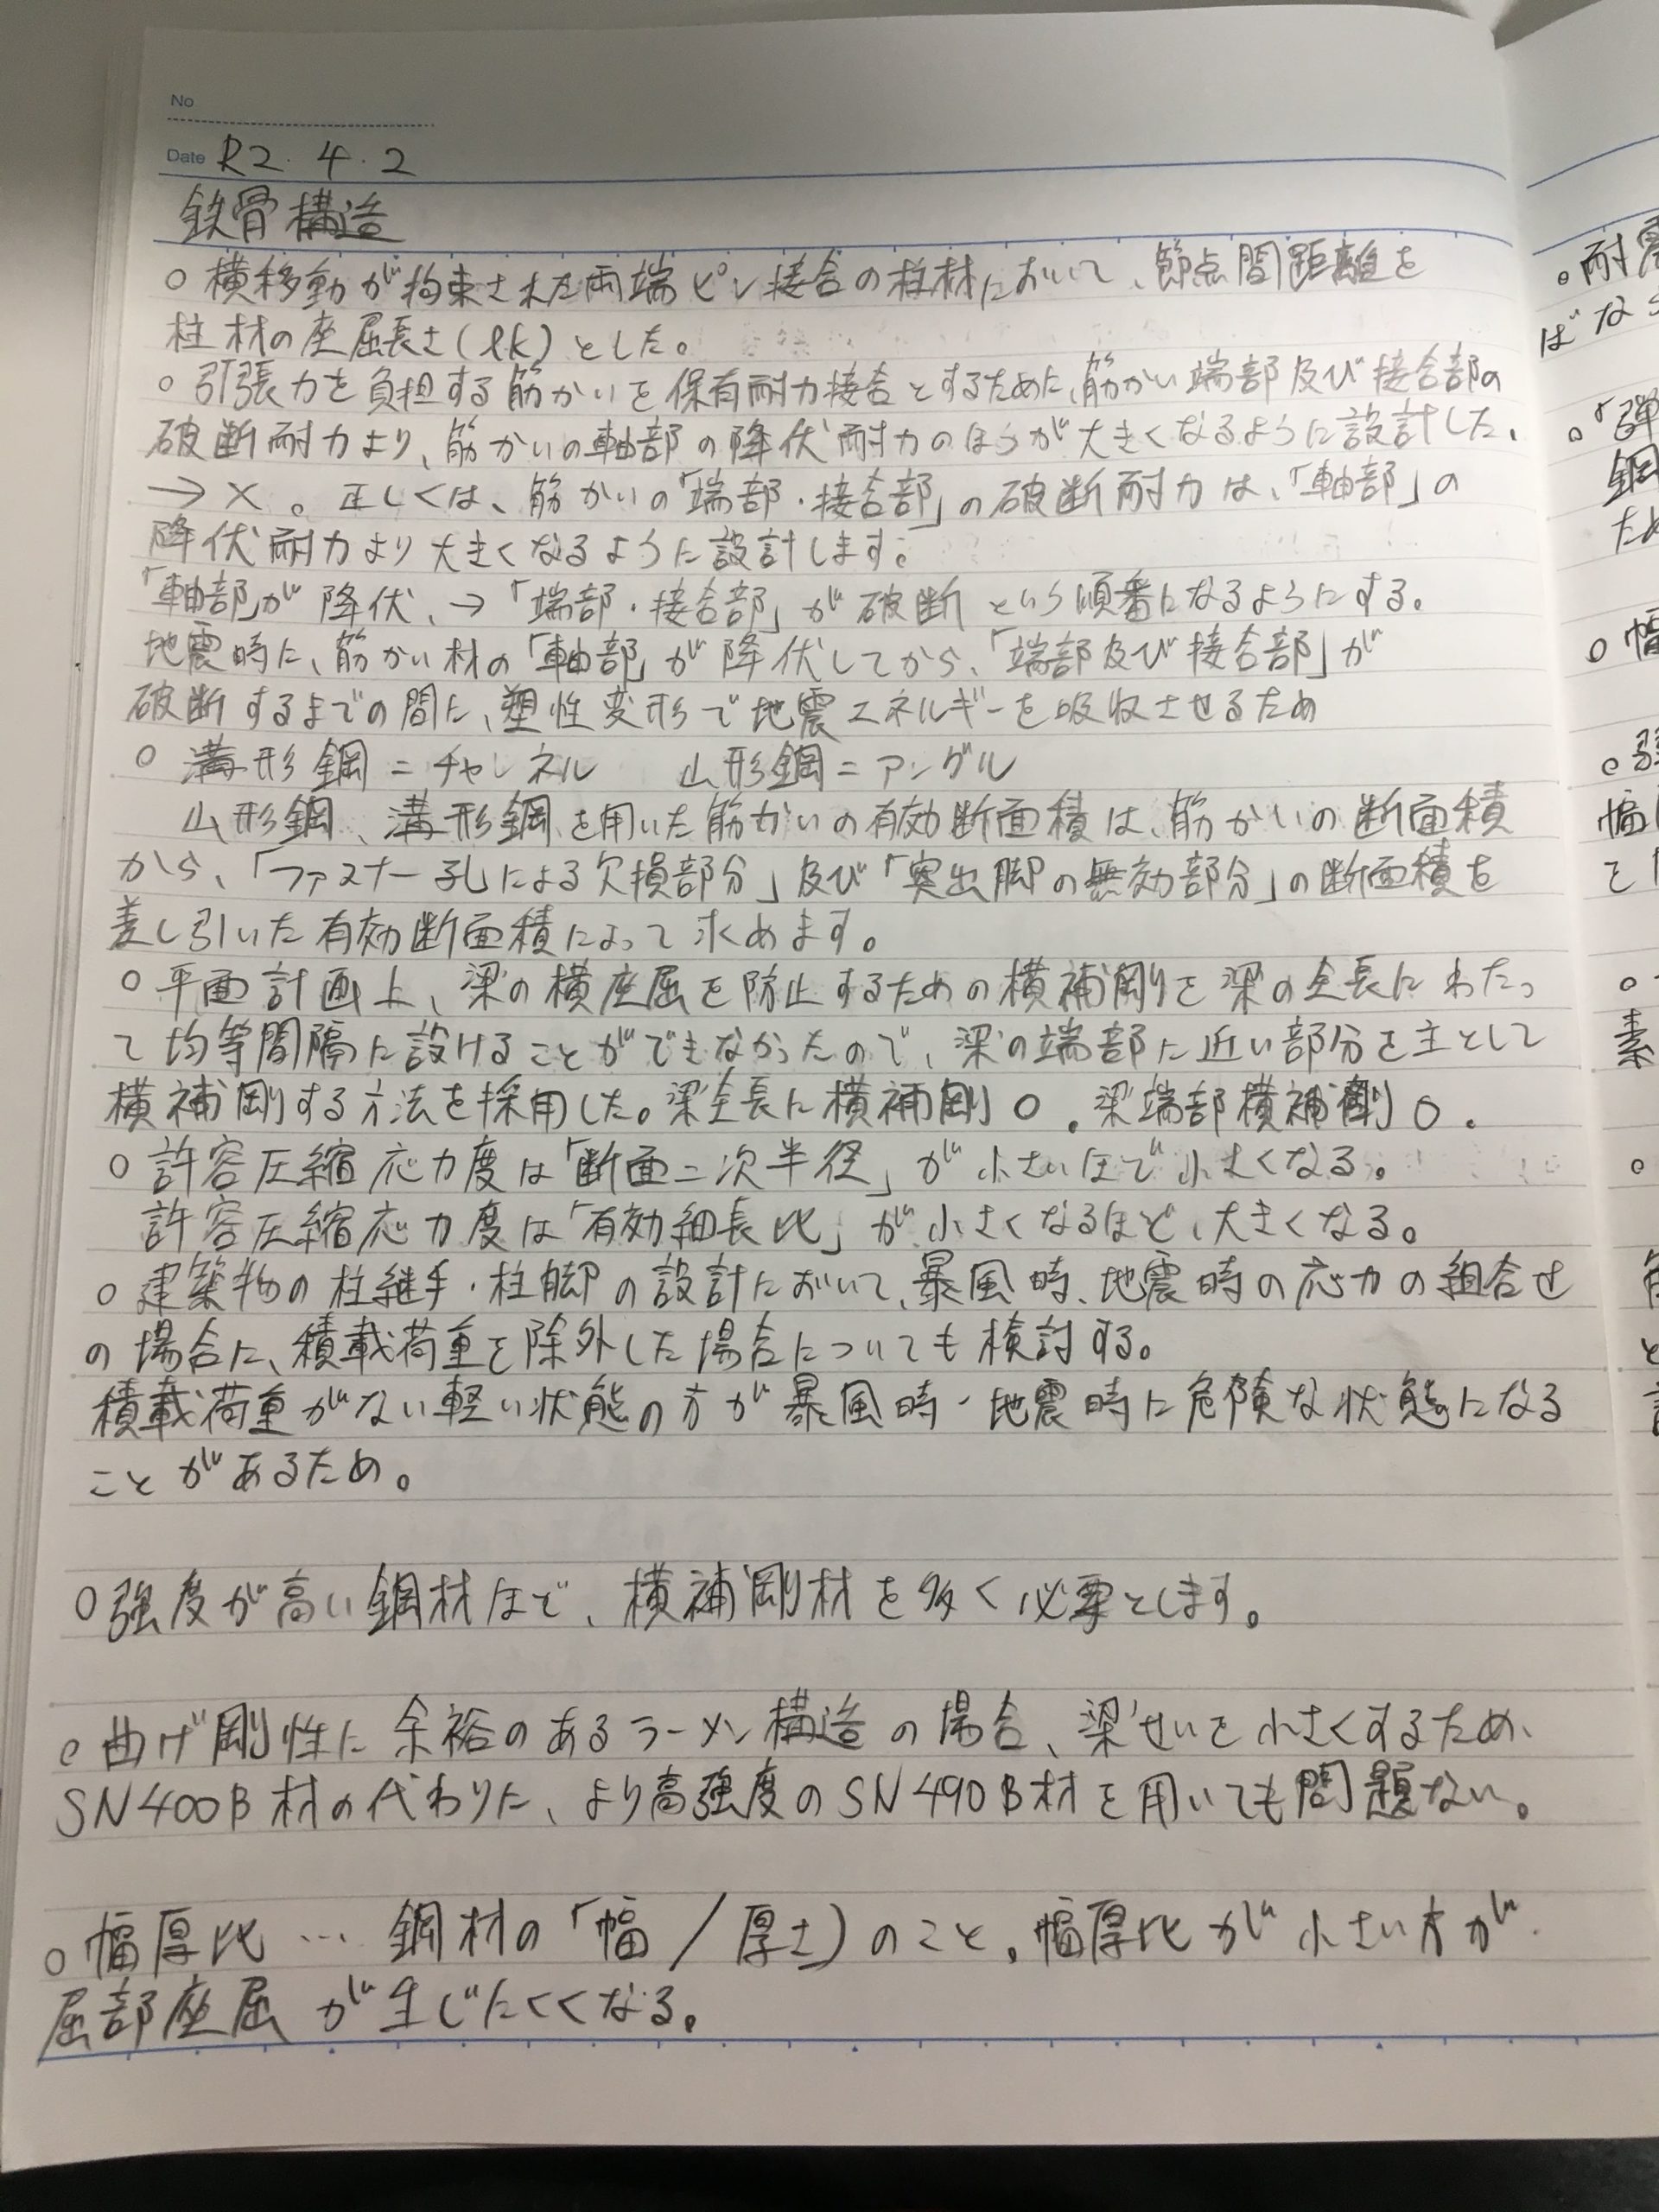 No
Date R2.4.2
鉄骨構造
○ 横移動が拘束された両端ピン接合の柱材において、節点間距離を
柱材の座屈長さ(lk)とした。
○ 引張力を負担する筋かいを保有耐力接合とするために、筋かい端部及び接合部の
破断耐力より、筋かいの軸部の降伏耐力のほうが大きくなるように設計した、
→ ×。正しくは、筋かいの「端部・接合部」の破断耐力は、「軸部」の
降伏耐力より大きくなるように設計します。
「軸部」が降伏、→「端部・接合部」が破断という順番になるようにする。
地震時に、筋かい材の「軸部」が降伏してから、「端部及び接合部」が
破断するまでの間に、塑性変形で地震エネルギーを吸収させるため
○ 溝形鋼=チャンネル 山形鋼=アングル
山形鋼、溝形鋼を用いた筋かいの有効断面積は、筋かいの断面積
から、「ファスナー孔による欠損部分」及び「突出脚の無効部分」の断面積を
差し引いた有効断面積によって求めます。
○ 平面計画上、梁の横座屈を防止するための横補剛を梁の全長にわたっ
て均等間隔に設けることができなかったので、梁の端部に近い部分を主として
横補剛する方法を採用した。梁全長に横補剛○。梁端部横補剛○.
○ 許容圧縮応力度は「断面二次半径」が小さいほど小さくなる。
許容圧縮応力度は「有効細長比」が小さくなるほど、大きくなる。
○ 建築物の柱継手・柱脚の設計において、暴風時、地震時の応力の組合せ
の場合に、積載荷重を除外した場合についても検討する。
積載荷重がない軽い状態の方が暴風時・地震時に危険な状態になる
ことがあるため。
○強度が高い鋼材ほど、横補剛材を多く必要とします。
○ 曲げ剛性に余裕のあるラーメン構造の場合、梁せいを小さくするため、
SN400B材の代わりに、より高強度のSN490B材を用いても問題ない。
○ 幅厚比…鋼材の「幅/厚さ」のこと。幅厚比が小さい方が
屈部座屈が生じにくくなる。
○耐震
ばなら
○「弾
鋼
ため
○幅
幅
と
素